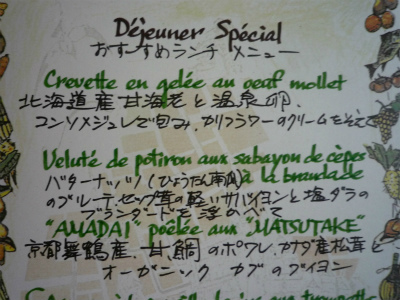 Déjeuner Spécial
おすすめランチ メニュー
Crevette en gelée au oeuf mollet
北海道産甘海老と温泉卵、
コンソメジュレで包み、カリフラワーのクリームを添えて
Veluté de potiron aux sabayon de cèpes
à la brandade
バターナッツ(ひょうたん南瓜)
のブルーテ、セップ茸の軽いサバイヨンと塩ダラの
ブランダードを浮かべて
"AMADAI" poêlée aux "MATSUTAKE"
京都舞鶴産、甘鯛のポワレ、カナダ産松茸と
オーガニック カブのブイヨン